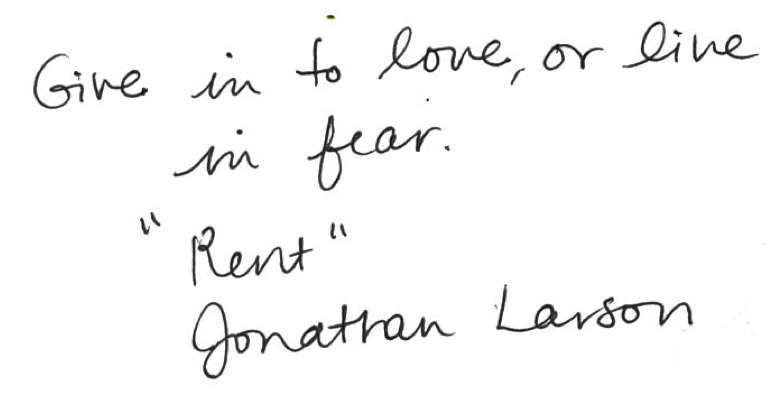 Give in to love, or live
in fear.
"Rent"
Jonathan Larson